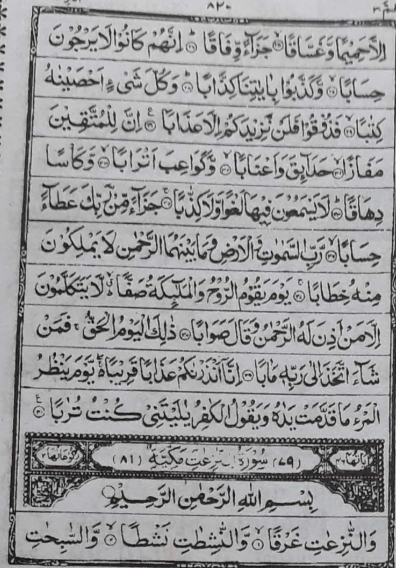 ٨٢٠
اِلَّا حَمِيْمًا وَّغَسَّاقًا ۙ﴿۲۵﴾ جَزَآءً وِّفَاقًا ؕ﴿۲۶﴾ اِنَّهُمْ كَانُوْا لَا يَرْجُوْنَ
حِسَابًا ۙ﴿۲۷﴾ وَّكَذَّبُوْا بِاٰيٰتِنَا كِذَّابًا ؕ﴿۲۸﴾ وَكُلَّ شَيْءٍ اَحْصَيْنٰهُ
كِتٰبًا ۙ﴿۲۹﴾ فَذُوْقُوْا فَلَنْ نَّزِيْدَكُمْ اِلَّا عَذَابًا ﴿۳۰﴾ اِنَّ لِلْمُتَّقِيْنَ
مَفَازًا ۙ﴿۳۱﴾ حَدَآئِقَ وَاَعْنَابًا ۙ﴿۳۲﴾ وَّكَوَاعِبَ اَتْرَابًا ۙ﴿۳۳﴾ وَّكَاْسًا
دِهَاقًا ؕ﴿۳۴﴾ لَا يَسْمَعُوْنَ فِيْهَا لَغْوًا وَّلَا كِذّٰبًا ۚ﴿۳۵﴾ جَزَآءً مِّنْ رَّبِّكَ عَطَآءً
حِسَابًا ۙ﴿۳۶﴾ رَّبِّ السَّمٰوٰتِ وَالْاَرْضِ وَمَا بَيْنَهُمَا الرَّحْمٰنِ لَا يَمْلِكُوْنَ
مِنْهُ خِطَابًا ۚ﴿۳۷﴾ يَوْمَ يَقُوْمُ الرُّوْحُ وَالْمَلٰٓئِكَةُ صَفًّا ؕۙ لَّا يَتَكَلَّمُوْنَ
اِلَّا مَنْ اَذِنَ لَهُ الرَّحْمٰنُ وَقَالَ صَوَابًا ﴿۳۸﴾ ذٰلِكَ الْيَوْمُ الْحَقُّ ۚ فَمَنْ
شَآءَ اتَّخَذَ اِلٰى رَبِّهٖ مَاٰبًا ﴿۳۹﴾ اِنَّاۤ اَنْذَرْنٰكُمْ عَذَابًا قَرِيْبًا ۚۖ يَّوْمَ يَنْظُرُ
الْمَرْءُ مَا قَدَّمَتْ يَدٰهُ وَيَقُوْلُ الْكٰفِرُ يٰلَيْتَنِيْ كُنْتُ تُرٰبًا ﴿۴۰﴾
(٧٩) سُوْرَةُ النّٰزِعٰتِ مَكِّيَّةٌ (٨١)
بِسْمِ اللّٰهِ الرَّحْمٰنِ الرَّحِيْمِ
وَالنّٰزِعٰتِ غَرْقًا ۙ﴿۱﴾ وَّالنّٰشِطٰتِ نَشْطًا ۙ﴿۲﴾ وَّالسّٰبِحٰتِ